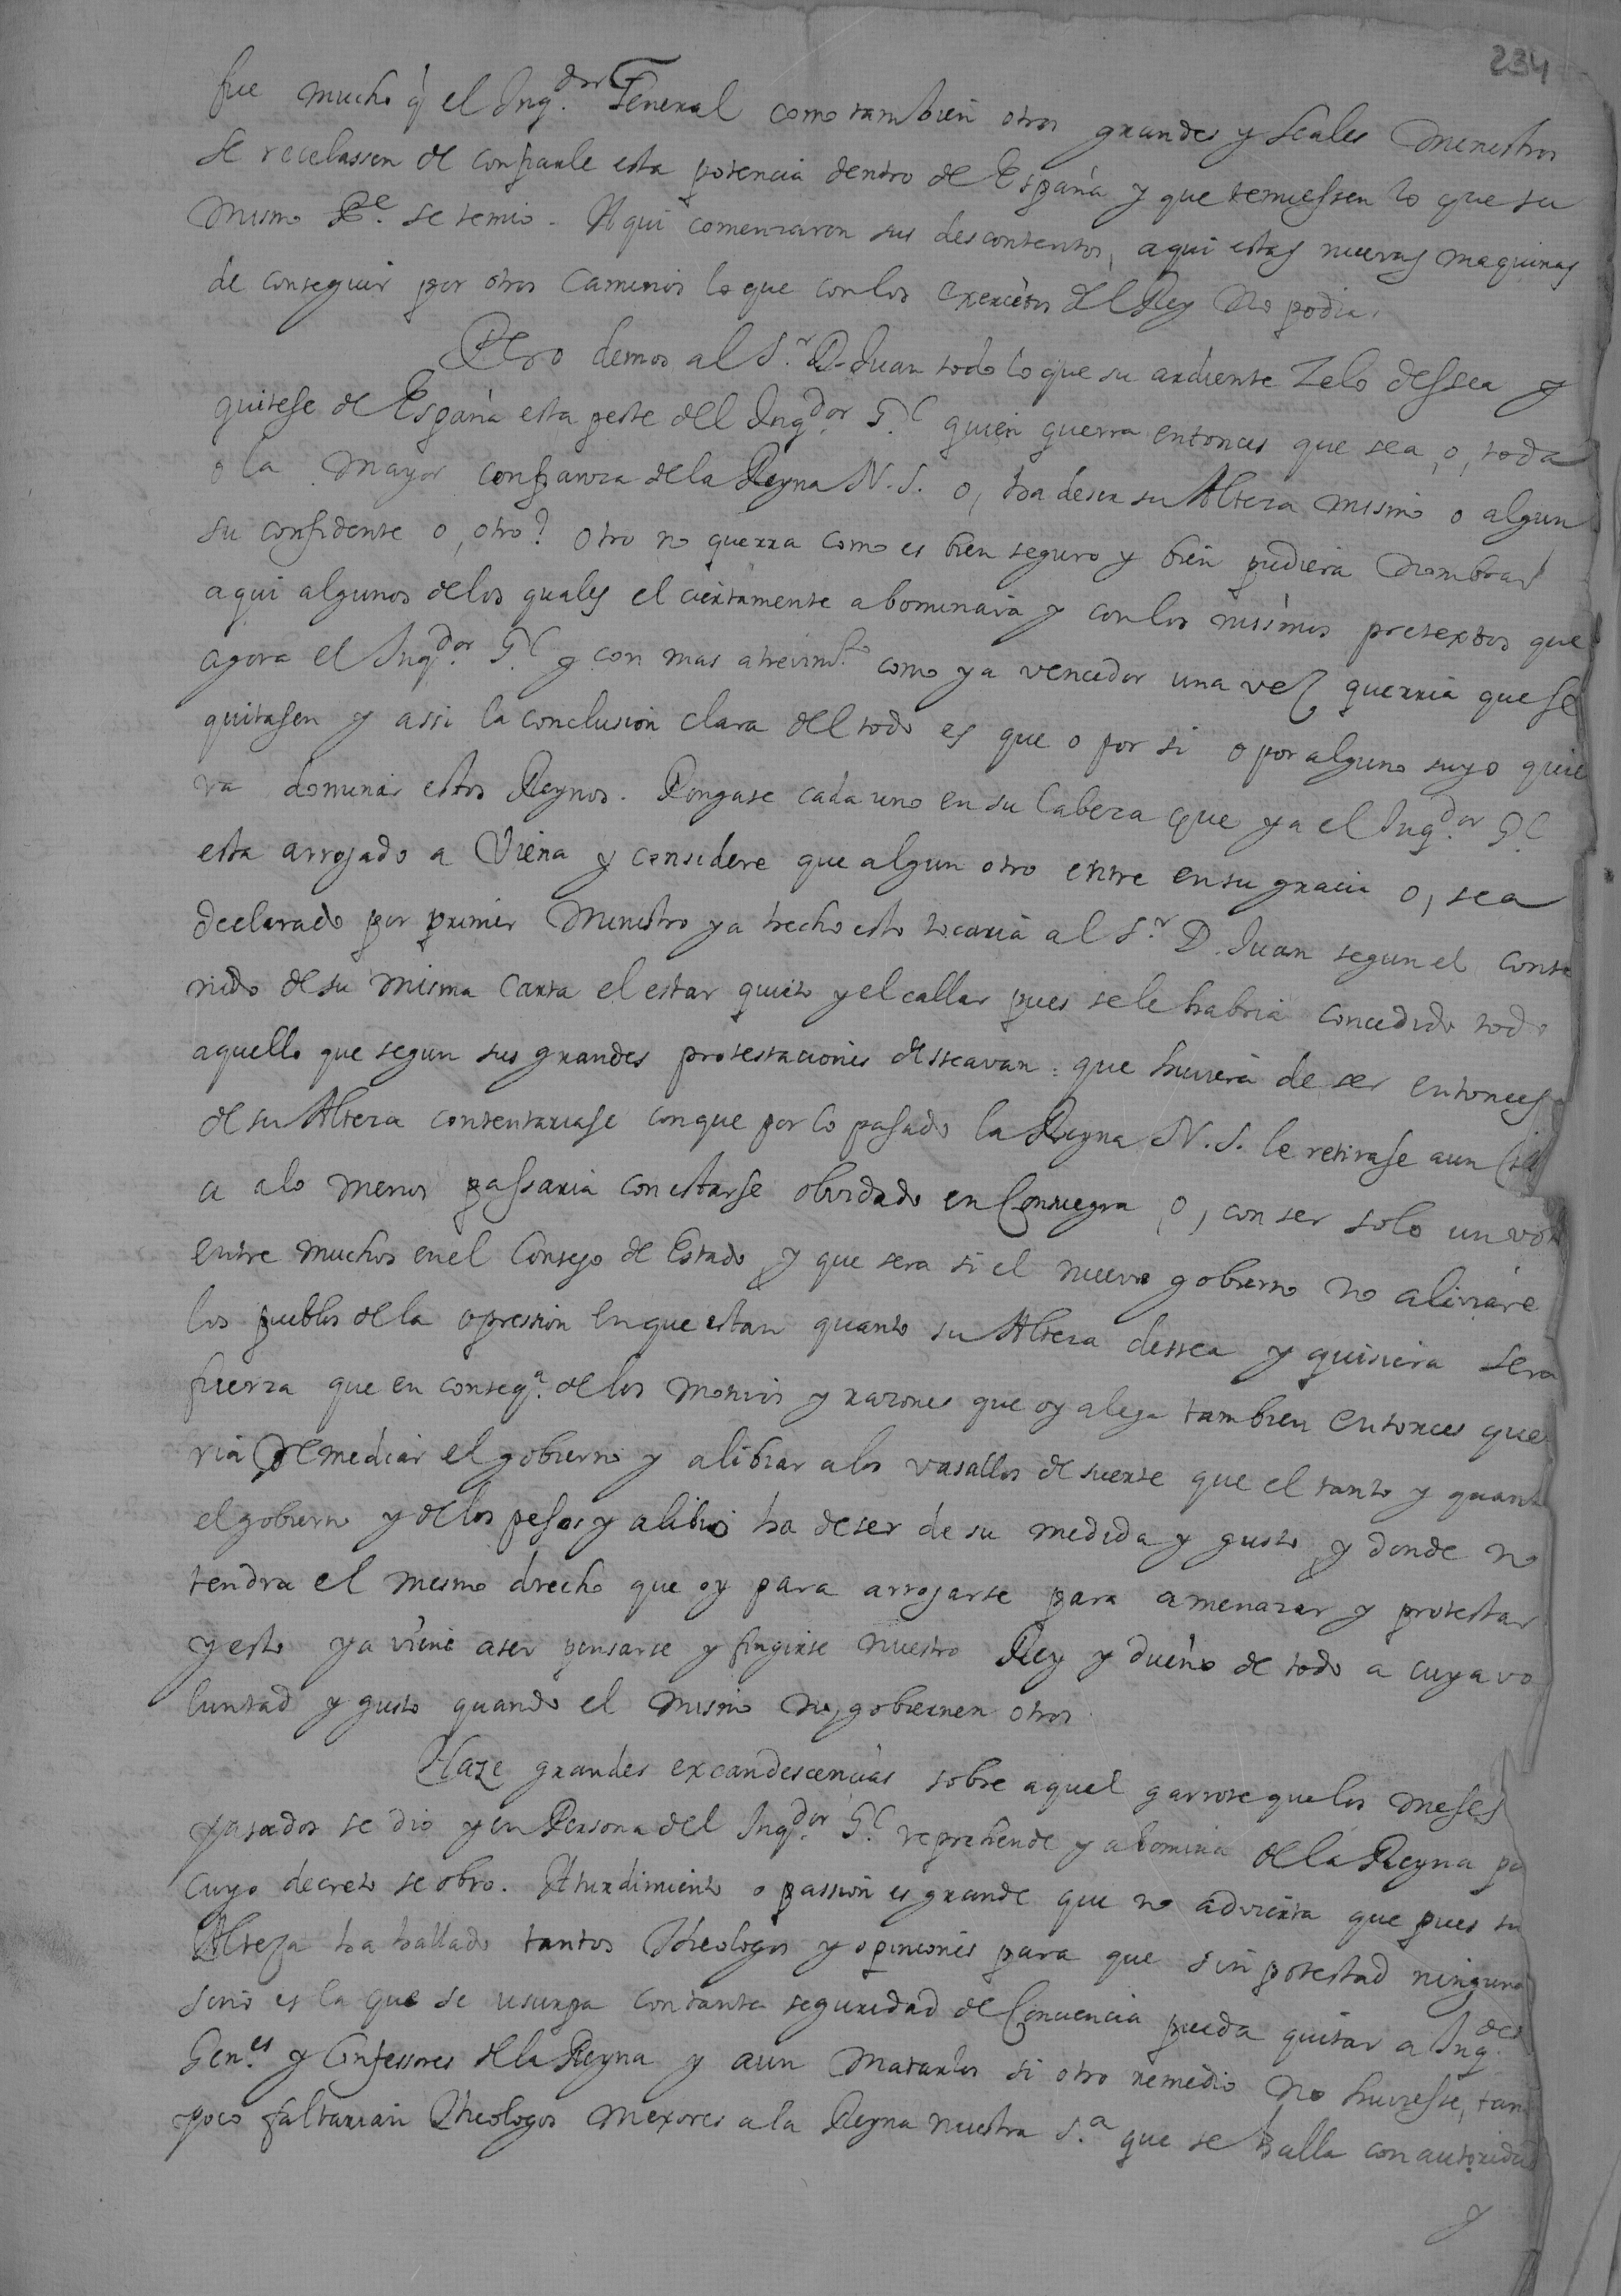 234
fue mucho q̃ el Inq.dor General como tambien otros grandes y leales Ministros
se recelassen de confiarle esta potencia dentro de España y que temiessen lo que su
mismo Pe. se temio. Aqui comenzaron sus descontentos, aqui estas nuevas maquinas
de conseguir por otros caminos lo que con los exercitos del Rey no podia.
Pero demos al S.r D. Juan todo lo que su ardiente Zelo dessea y
quitese de España esta peste del Inq.dor G.l quien querra entonces que sea, o, toda
o la mayor confianza de la Reyna N. S. o, ha de ser su Alteza mismo o algun
su confidente o, otro? otro no querra como es bien seguro y bien pudiera nombrar
aqui algunos de los quales el ciertamente abominaria y con los mismos pretextos que
agora el Inq.dor G.l y con mas atrevim.to como ya vencedor una vez querria que se
quitasen y assi la conclusion clara del todo es que o por si o por alguno suyo quie
ra dominar estos Reynos. Pongase cada uno en su Cabeza que ya el Inq.dor G.l
esta arrojado a Viena y considere que algun otro entre en su gracia o, sea
declarado por primer Ministro ya hecho esto tocaria al S.r D. Juan segun el conte
nido de su misma Carta el estar quieto y el callar pues se le habria concedido todo
aquello que segun sus grandes protestaciones desseavan: que huviera de ser entonces
de su Alteza contentariase con que por lo pasado la Reyna N. S. le retirase aun
a alo menos passaria con estarse olvidado en Consuegra, o, con ser solo un voto
entre muchos en el Consejo de Estado y que sera si el nuevo gobierno no aliviare
los pueblos de la opression en que estan quanto su Alteza dessea y quisiera sera
fuerza que en conseq.a de los motivos y razones que oy alega tambien entonces que
ria remediar el gobierno y alibiar a los vasallos de suerte que el tanto y quanto
el gobierno y de los pesos y alibios ha de ser de su medida y gusto y donde no
tendra el mesmo drecho que oy para arrojarse para amenazar y protestar
y esto ya viene a ser pensarse y fingirse nuestro Rey y dueño de todo a cuya vo
luntad y gusto quando el mismo no, gobiernen otros.
Haze grandes excandescencias sobre aquel garrote que los meses
pasados se dio y en Persona del Inq.dor G.l reprehende y abomina de la Reyna po
cuyo decreto se obro. Aturdimiento o passion es grande que no advierta que pues su
Alteza ha hallado tantos Theologos y opiniones para que sin potestad ninguna
sino es la que se usurpa con tanta seguridad de Conciencia pueda quitar a Inq.des
Gen.es y Confessores de la Reyna y aun matarlos si otro remedio no huviesse, tam
poco faltarian Theologos mexores a la Reyna nuestra S.a que se halla con autoridad
y